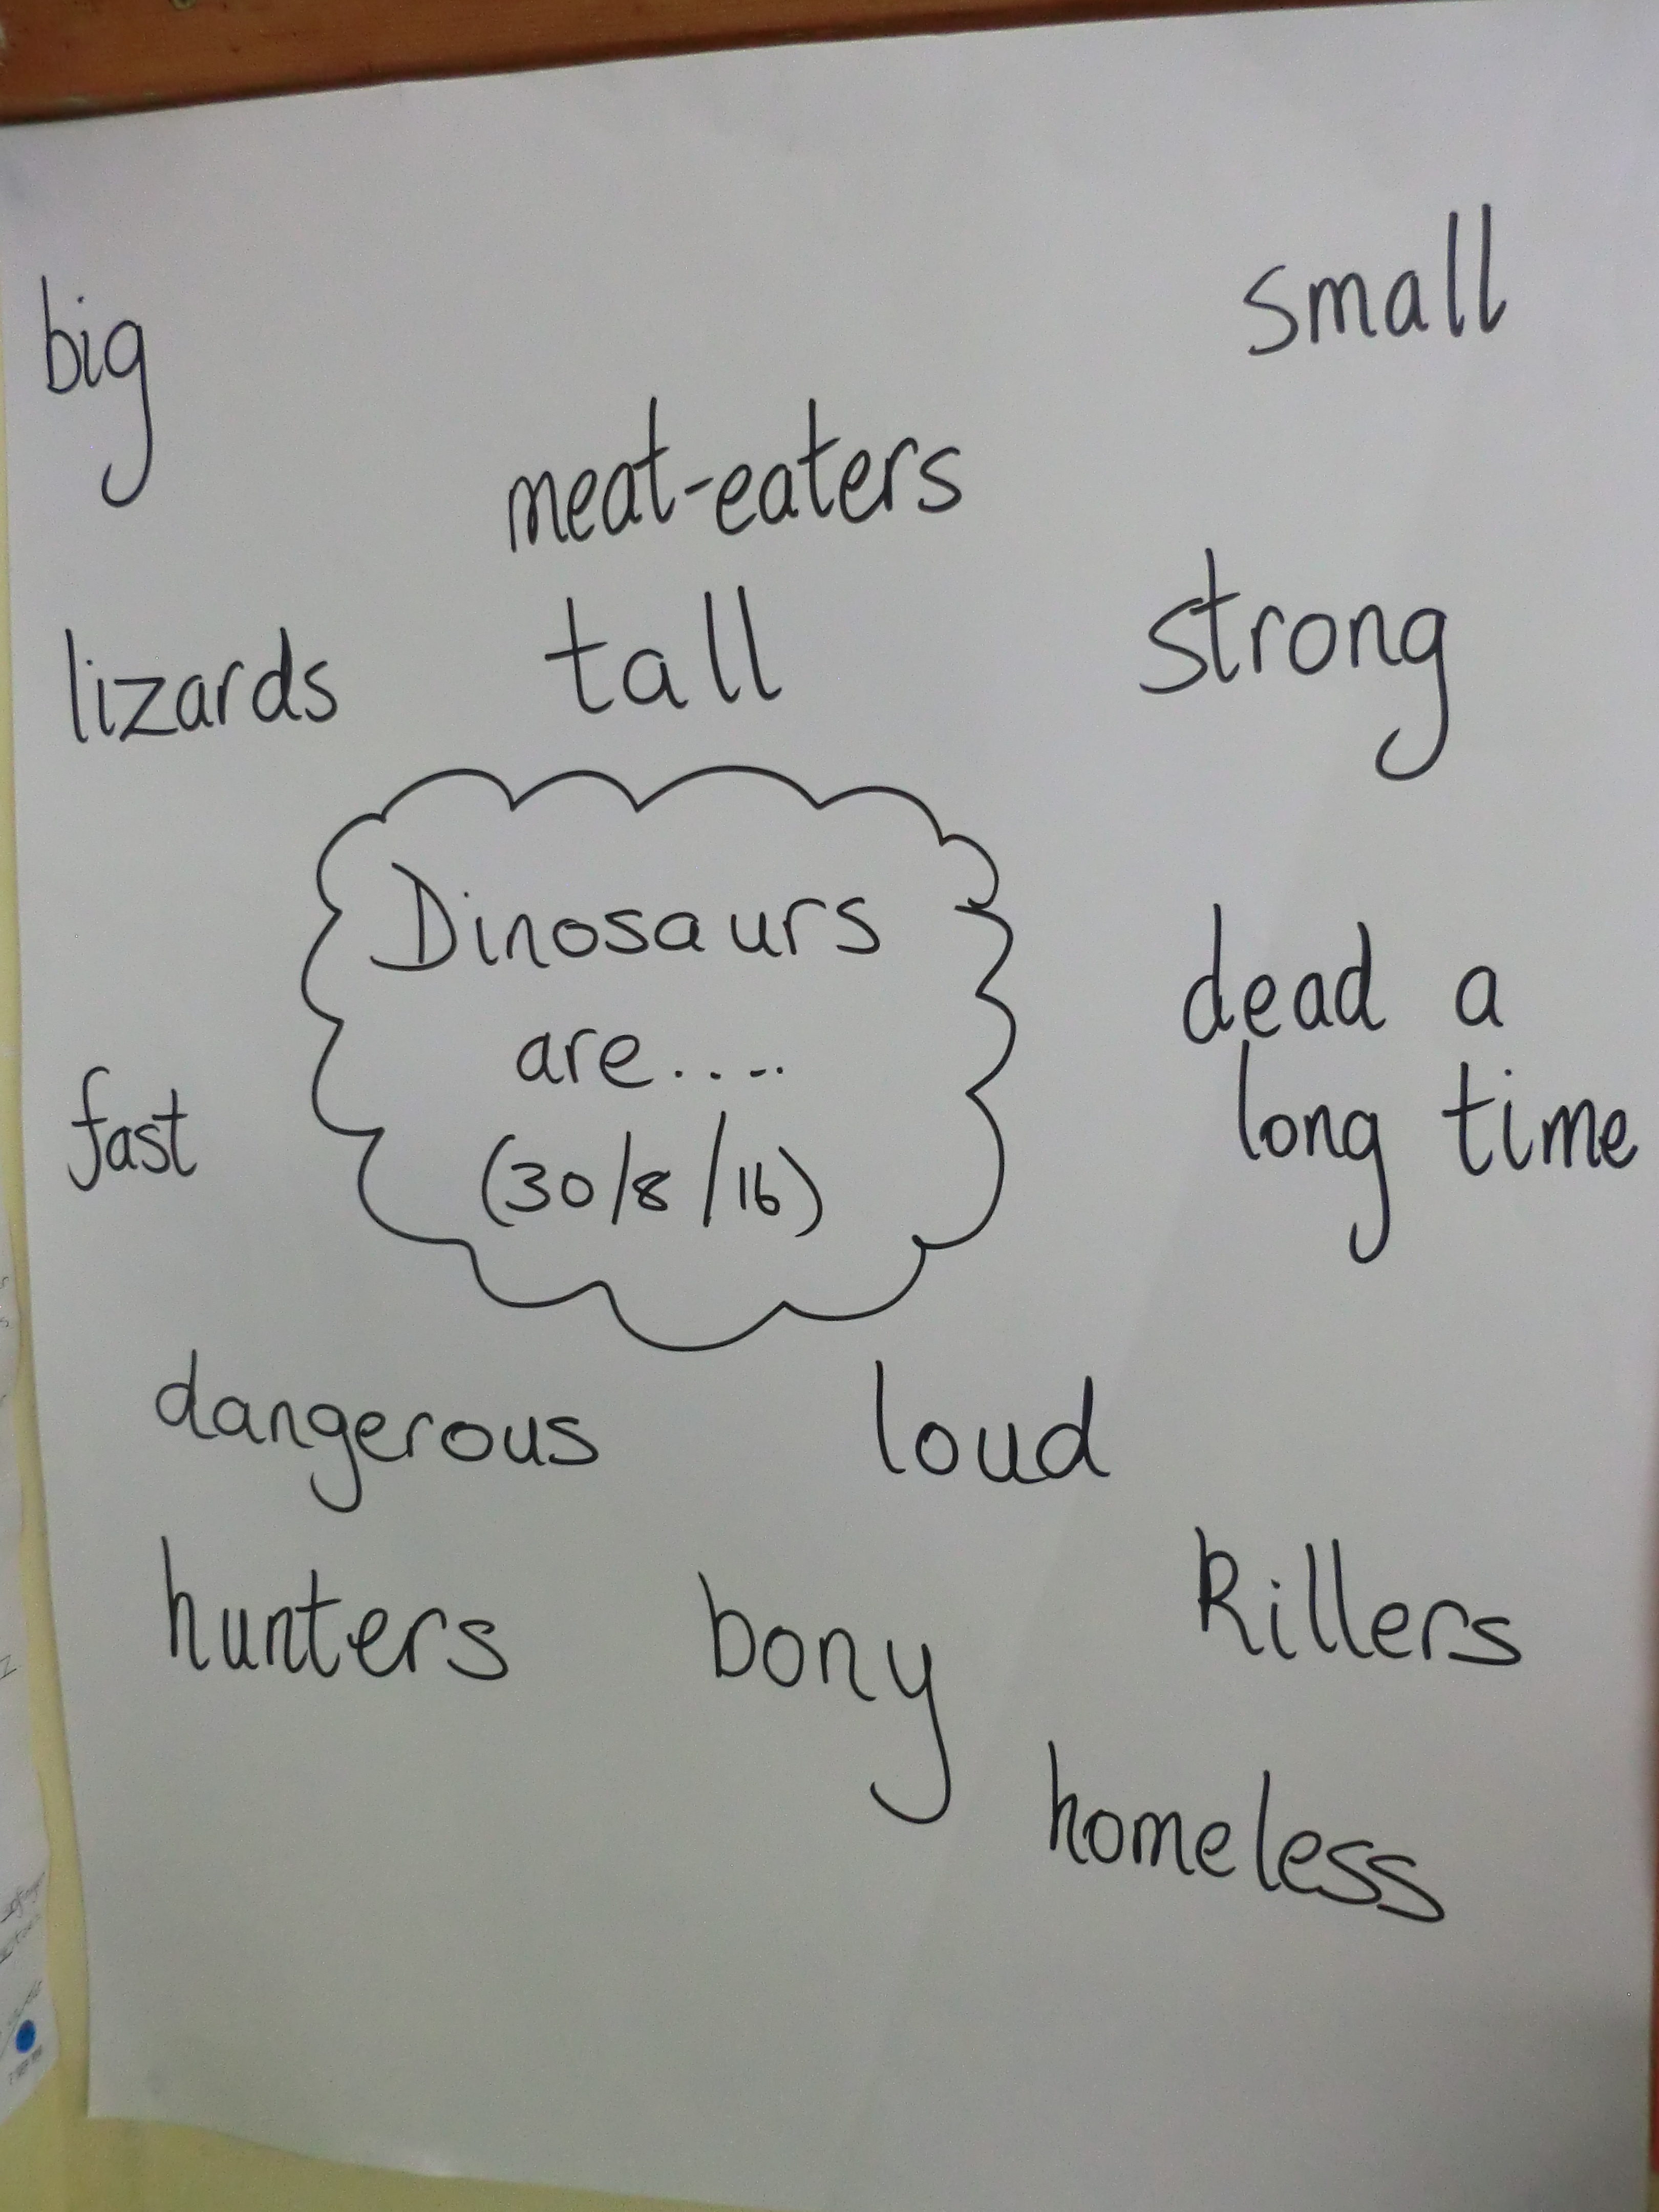 big
small
meat-eaters
lizards
tall
strong
Dinosaurs
are.....
(30/8/16)
dead a
long time
fast
dangerous
loud
hunters
bony
killers
homeless